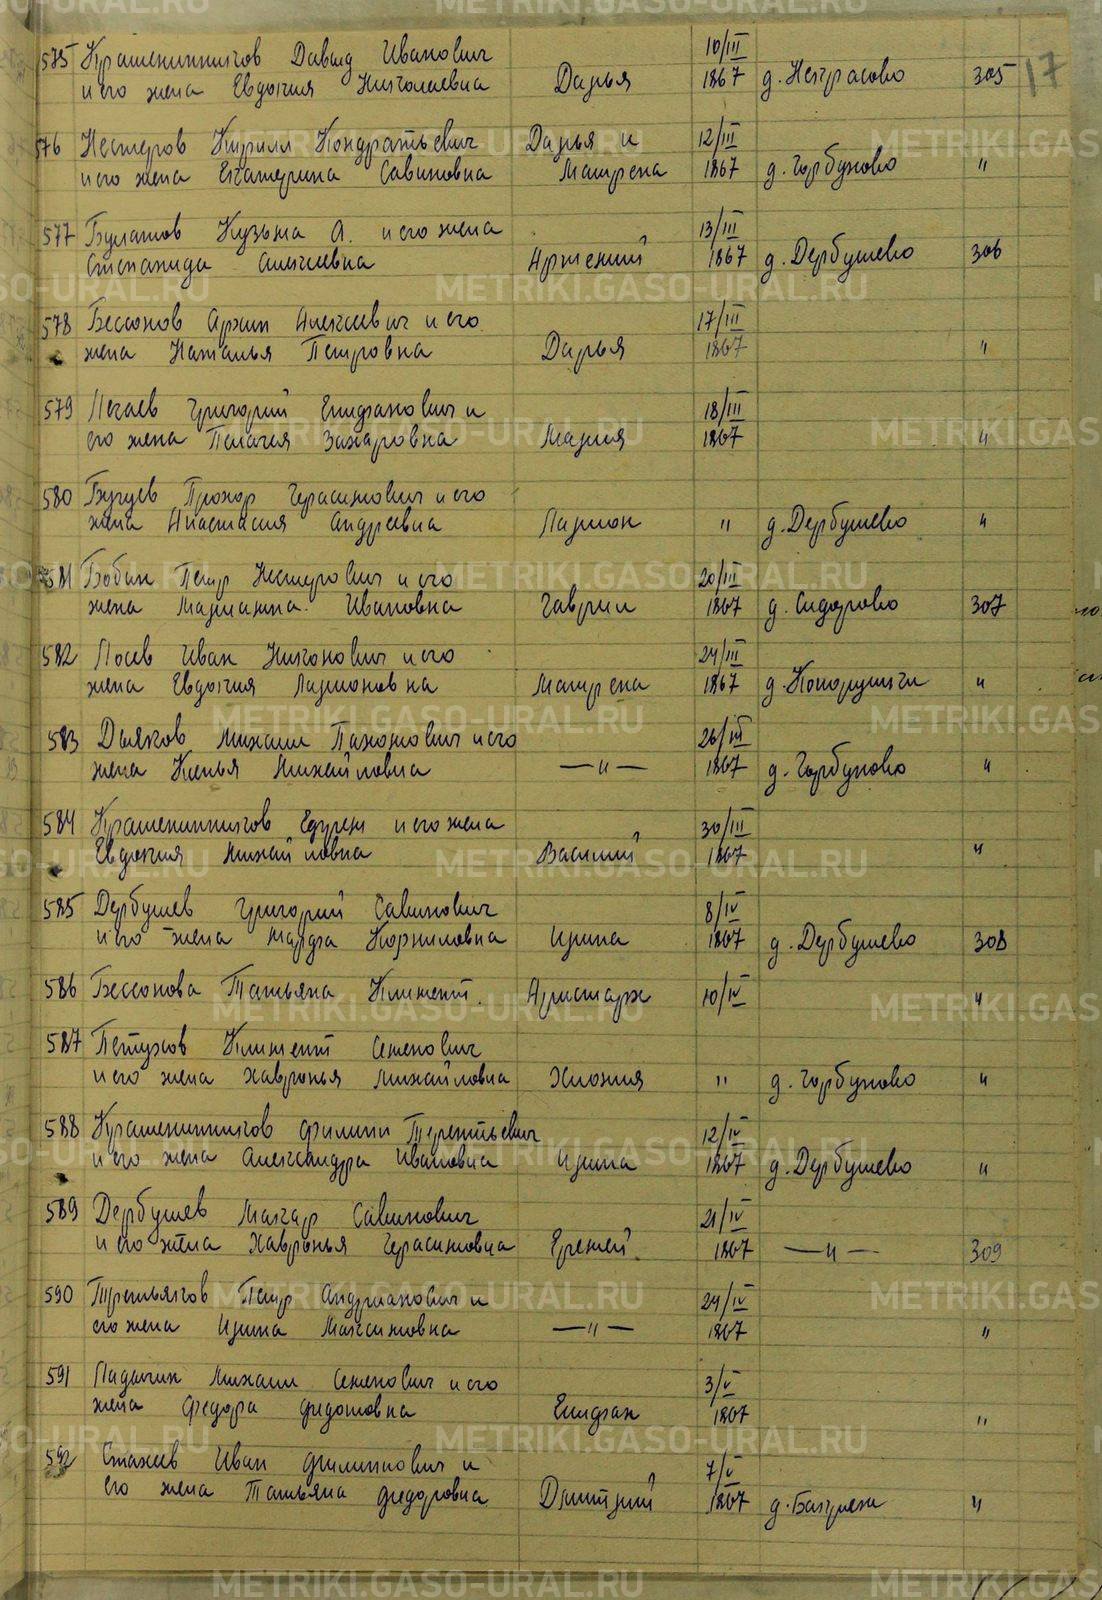 17
575 Крашенинников Давид Иванович 10/III
и его жена Евдокия Николаевна Дарья 1867 д. Некрасово 305
576 Нестеров Кирилл Кондратьевич Дарья и 12/III
и его жена Екатерина Савиновна Матрена 1867 д. Горбуново "
577 Булатов Кузьма А. и его жена 13/III
Степанида Алексеевна Артемий 1867 д. Дербушево 306
578 Бессонов Архип Алексеевич и его 17/III
жена Наталья Петровна Дарья 1867 "
579 Григорий Епифанович и 18/III
его жена Пелагея Захаровна Мария 1867 "
580 Прохор Герасимович и его
жена Анастасия Андреевна Ларион " д. Дербушево "
581 Бобин Петр Нестерович и его 20/III
жена Марианна Ивановна Гаврил 1867 д. Сидорово 307
582 Лосев Иван Никонович и его 24/III
жена Евдокия Ларионовна Матрена 1867 "
583 Дьяков Михаил Пахомович и его 26/III
жена Ксенья Михайловна —"— 1867 д. Горбуново "
584 Крашенинников и его жена 30/III
Евдокия Михайловна Василий 1867 "
585 Дербушев Григорий Савинович 8/IV
и его жена Марфа Корниловна Ирина 1867 д. Дербушево 308
586 Бессонова Татьяна Климент. Аристарх 10/IV "
587 Петухов Климент Семенович
и его жена Хавронья Михайловна Хиония " д. Горбуново "
588 Крашенинников Филипп Терентьевич 12/IV
и его жена Александра Ивановна Ирина 1867 д. Дербушево "
589 Дербушев Макар Савинович 21/IV
и его жена Хавронья Герасимовна Еремей 1867 —"— 309
590 Третьяков Петр Андрианович и 24/IV
его жена Ирина Максимовна —"— 1867 "
591 Ладыгин Михаил Семенович и его 3/V
жена Федора Федотовна Епифан 1867 "
592 Стахеев Иван Филиппович и 7/V
его жена Татьяна Федоровна Дмитрий 1867 "
METRIKI.GASO-URAL.RU